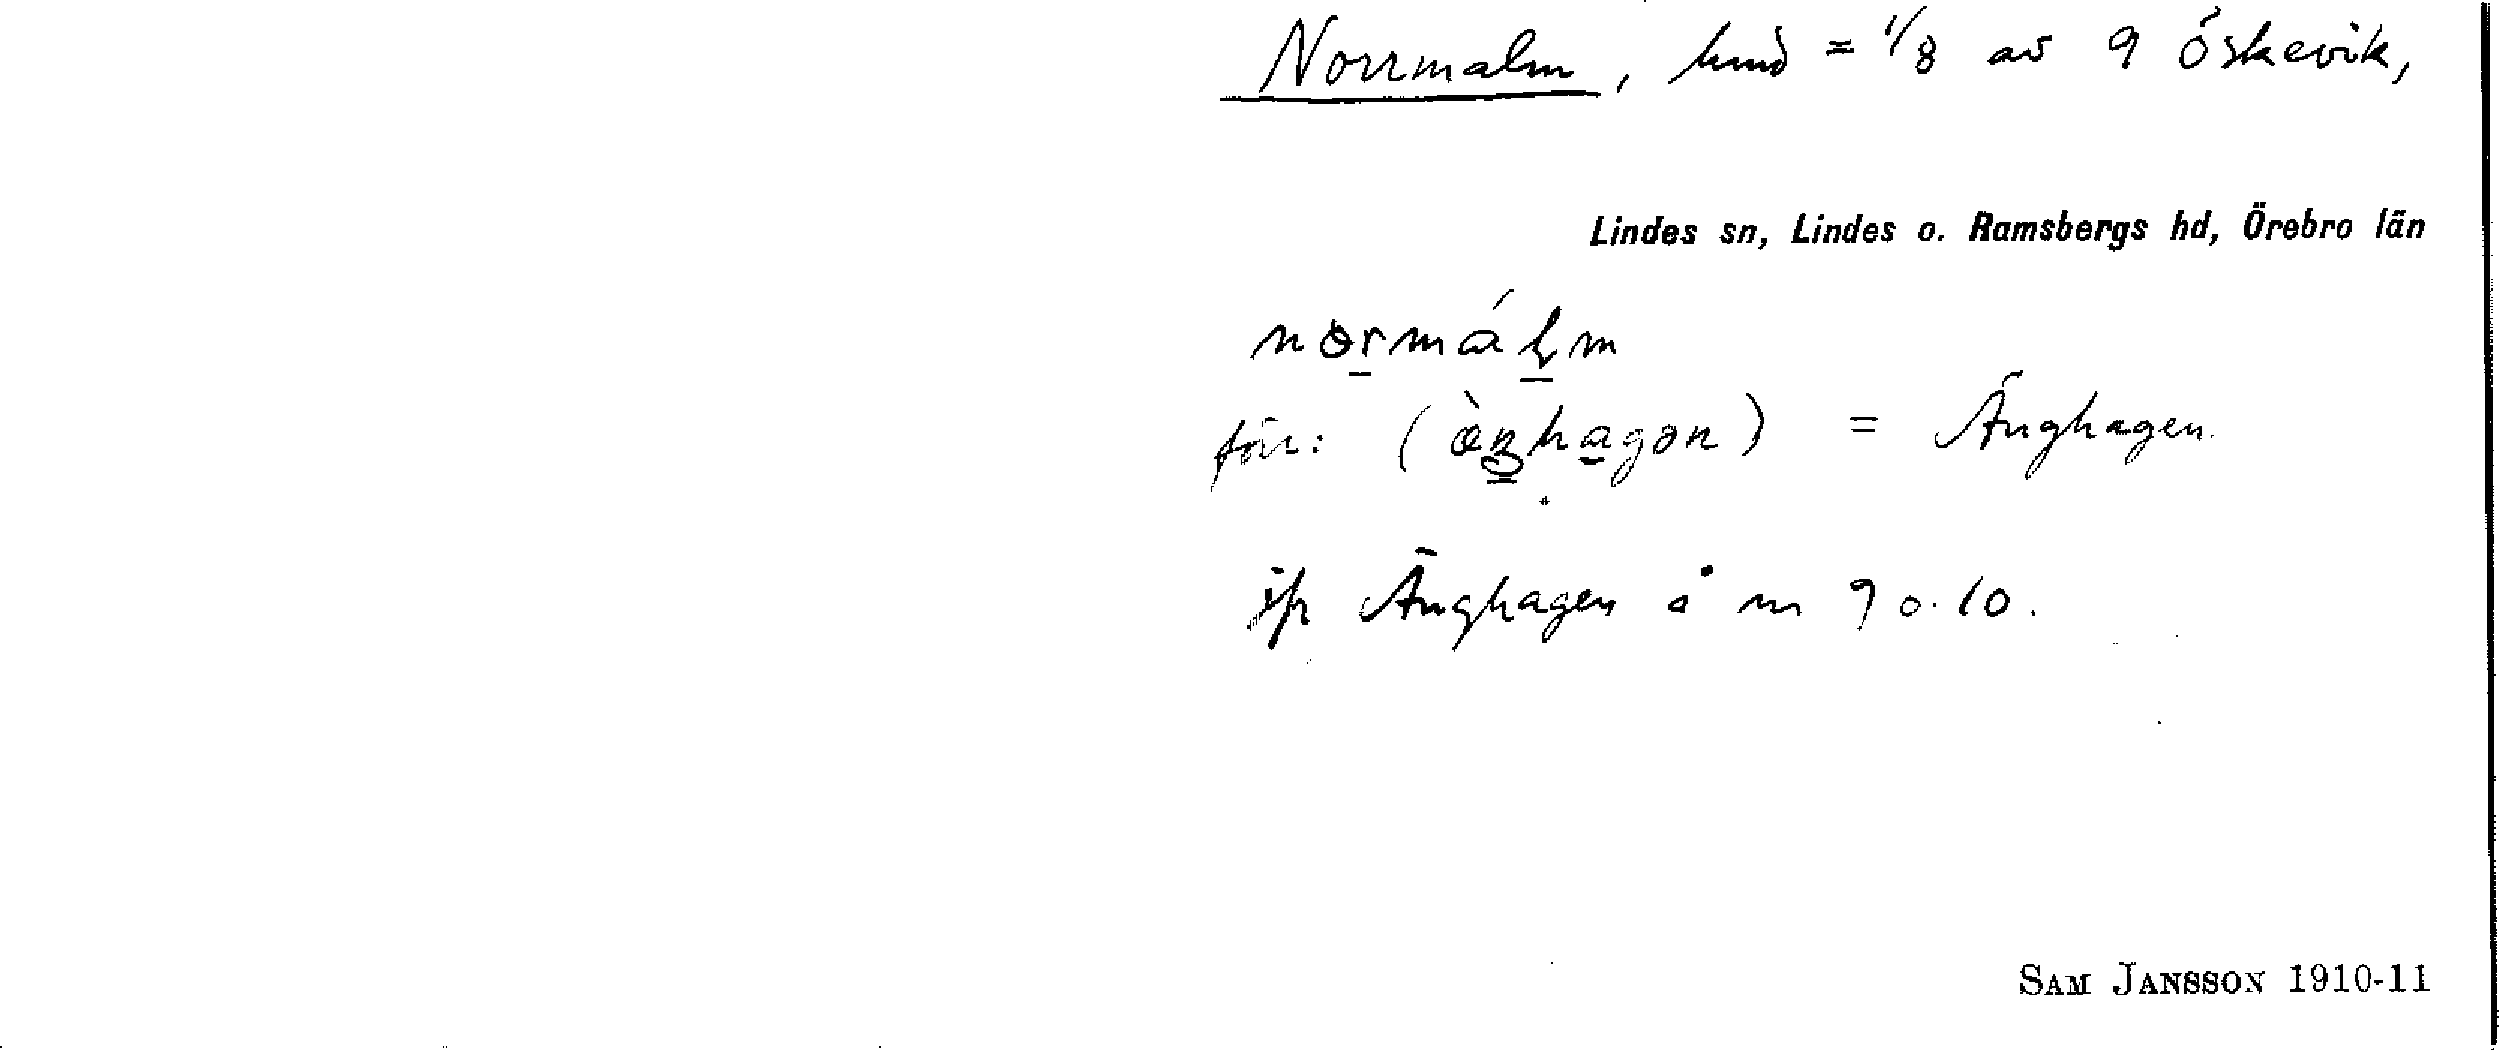 Norrmalm, hmd = 1/8 av 9 Öskevik,
Lindes sn, Lindes o. Ramsbergs hd, Örebro län
normálm
förr: (æ̀ŋhagən) = Änghagen.
Änghagen å m 9 o. 10.
SAM JANSSON 1910-11